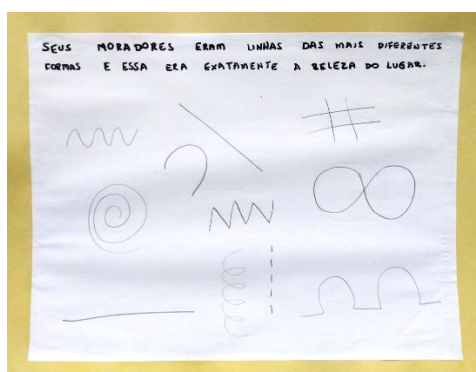 SEUS MORADORES ERAM LINHAS DAS MAIS DIFERENTES
FORMAS E ESSA ERA EXATAMENTE A BELEZA DO LUGAR.